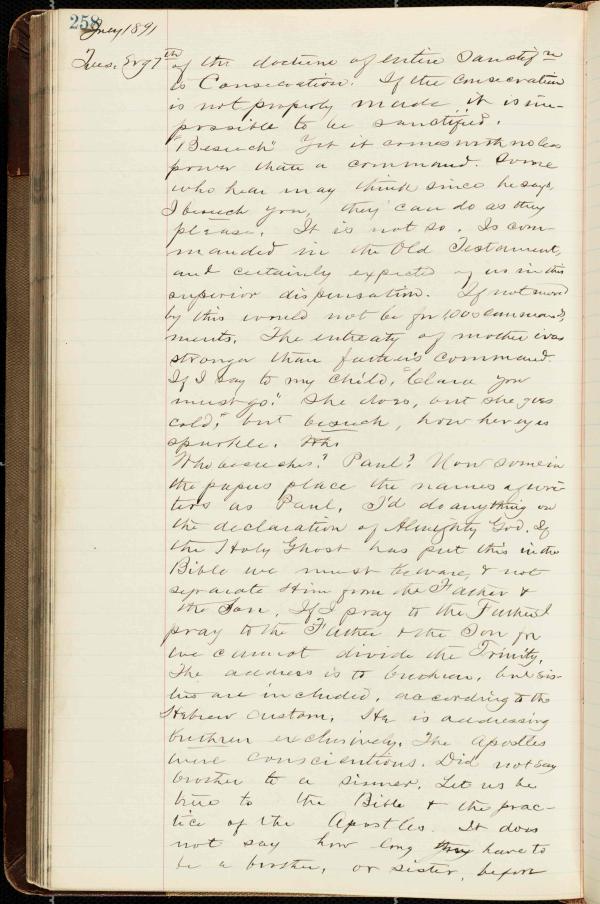 258
July 1891
Tues. Evg 7th of the doctrine of entire Sanctifn
is Consecration. If the Consecration
is not properly made, it is im-
possible to be sanctified.
"Beseech" Yet it comes with no less
power than a command. Some
who hear may think since he says,
I beseech you, they can do as they
please. It is not so. Is com-
manded in the Old Testament,
and certainly expected of us in this
superior dispensation. If not moved
by this would not be for 1000 command-
ments. The entreaty of mother was
stronger than father's command.
If I say to my child, "Clara you
must go." She does, but she goes
cold; but beseech, how her eyes
sparkle. Who
Who beseeches? Paul? Now some in
the papers place the names of wri-
ters as Paul. I'd do anything on
the declaration of Almighty God. If
the Holy Ghost has put this in the
Bible we must beware, & not
separate Him from the Father &
the Son. If I pray to the Father I
pray to the Father & the Son for
we cannot divide the Trinity.
The address is to brethren, but sis-
ters are included, according to the
Hebrew custom. He is addressing
brethren exclusively. The Apostles
were conscientious. Did not say
brother to a sinner. Let us be
true to the Bible & the prac-
tice of the Apostles. It does
not say how long they have to
be a brother, or sister, before